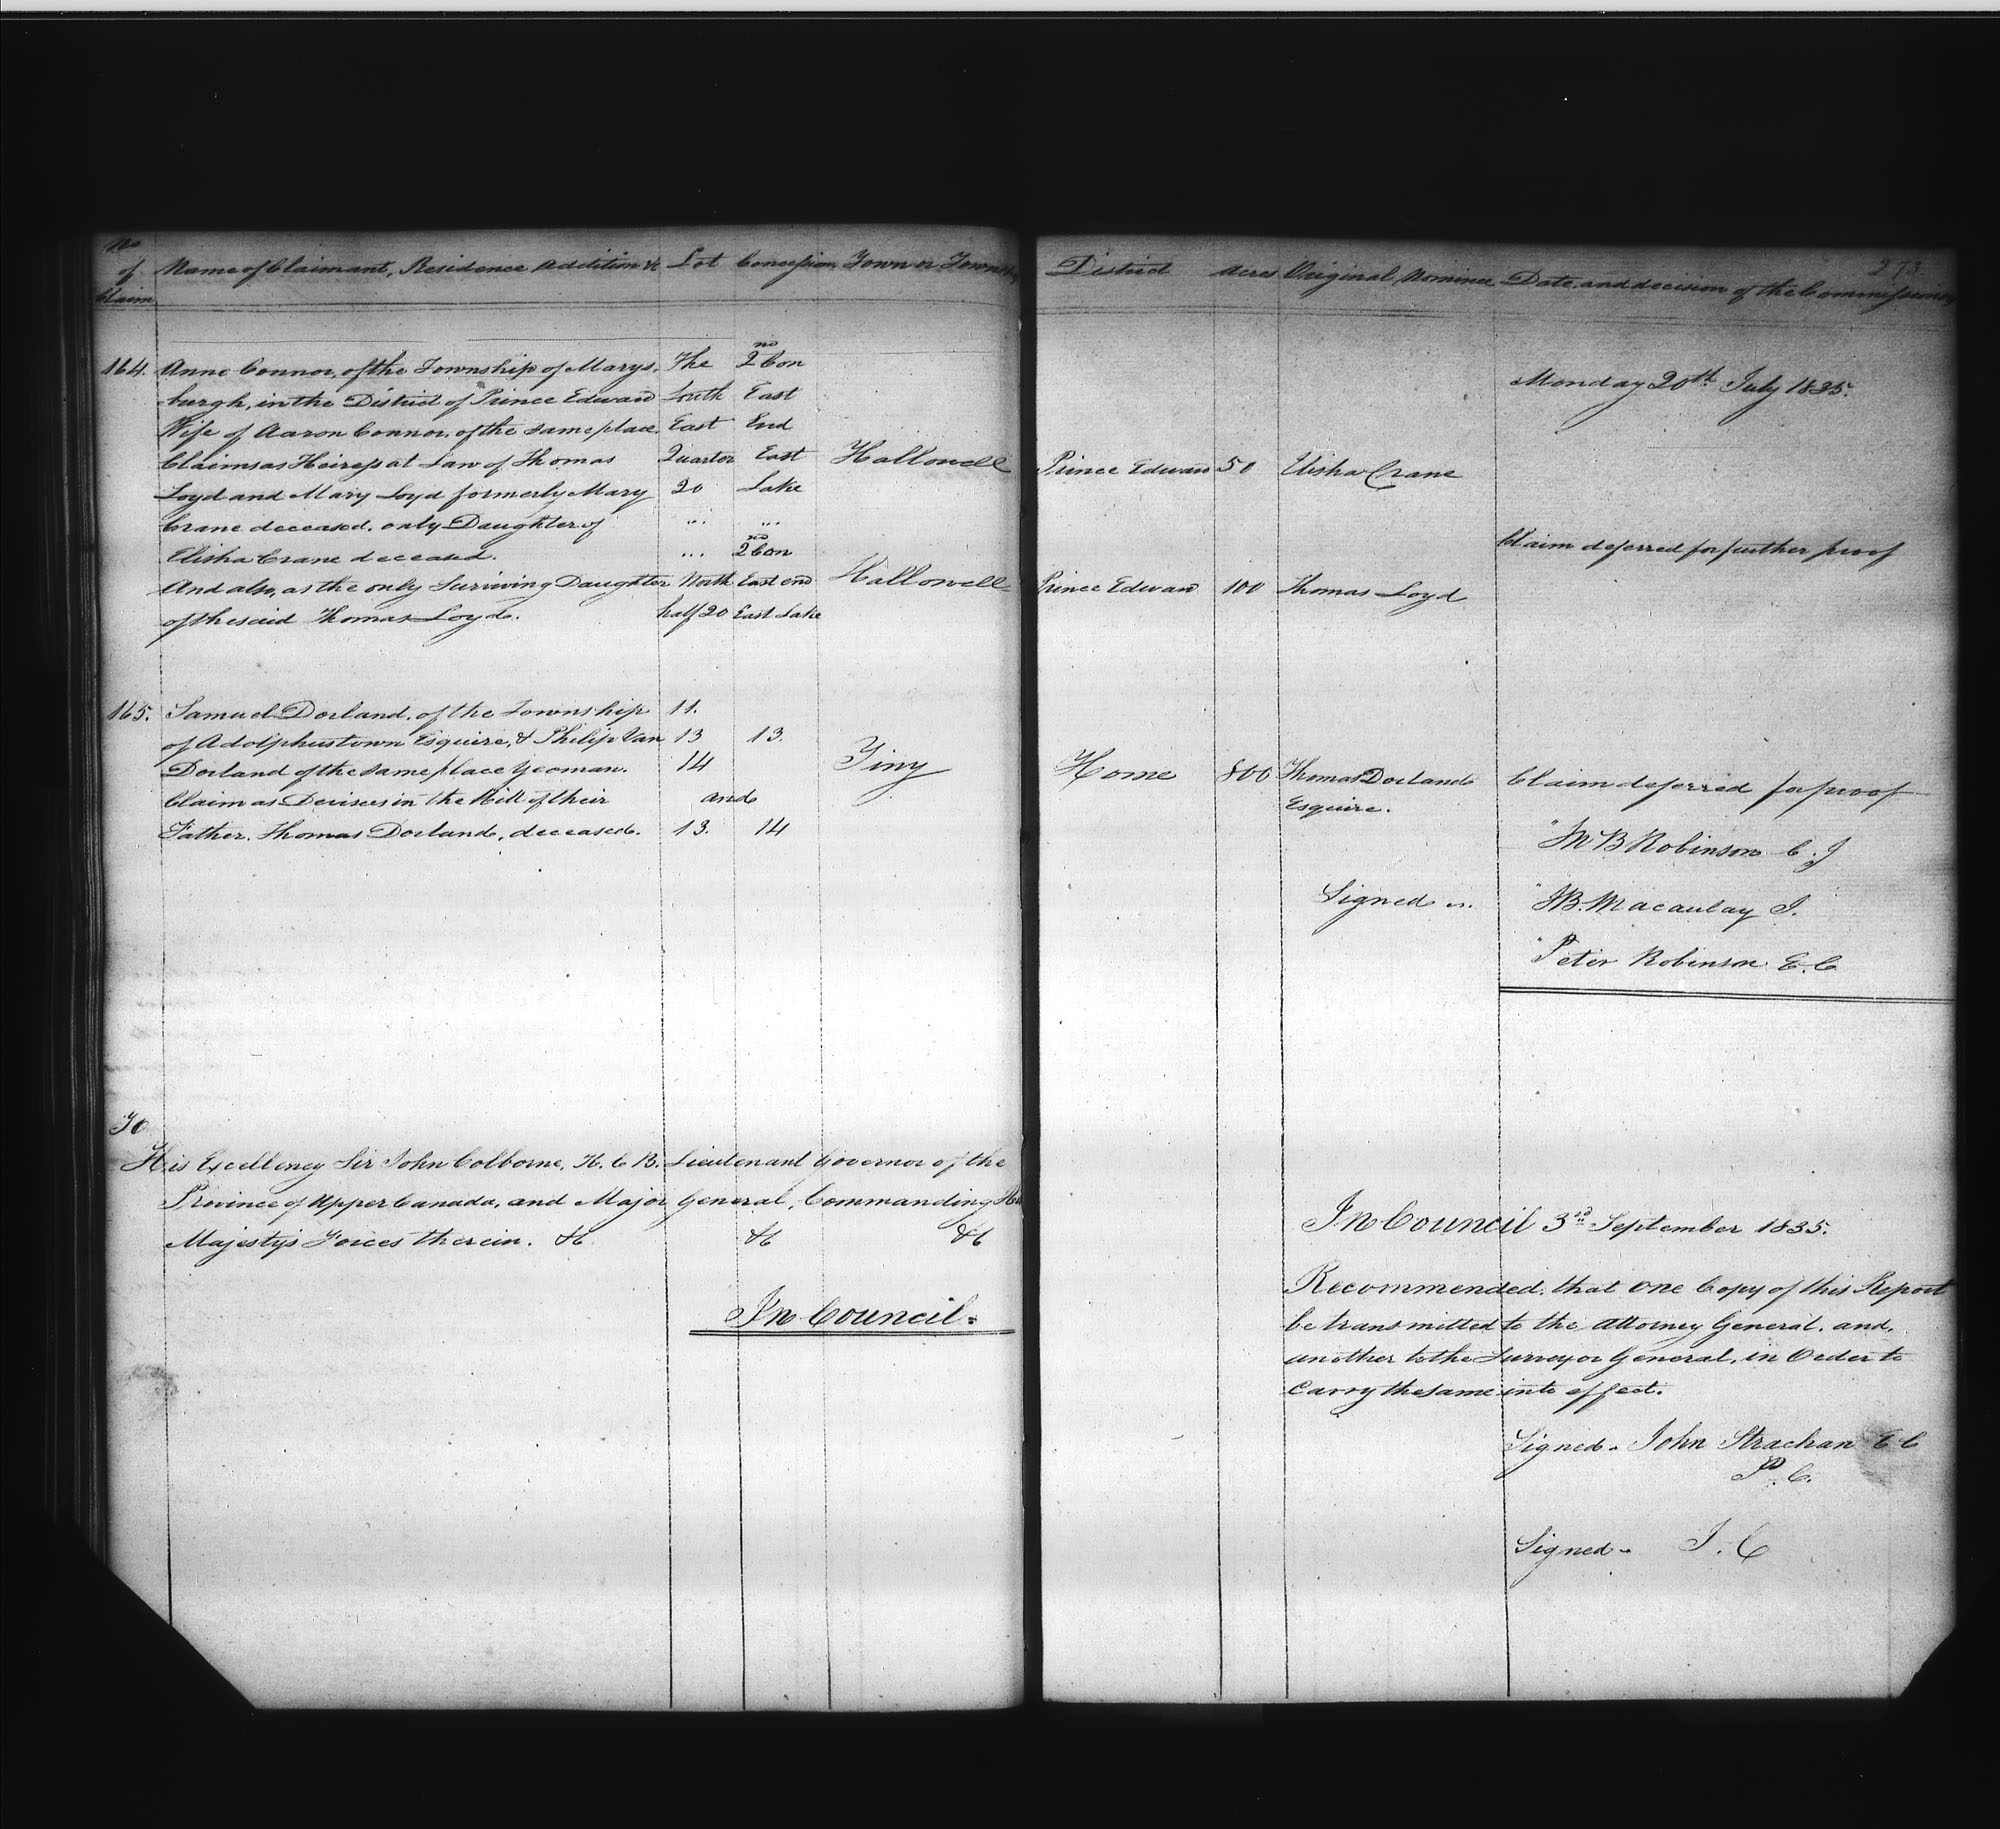 No of Claim | Name of Claimant, Residence Addition &c | Lot | Concession | Town or Township | District | Acres | Original Nominee | Date and decision of the Commissioners
273
Monday 20th July 1835.
164. Anne Connor, of the Township of Marys- | The | 2nd Con
burgh, in the District of Prince Edward | South | East
Wife of Aaron Connor, of the same place. | East | End
Claims as Heiress at Law of Thomas | Quarter | East | Hallowell | Prince Edward | 50 | Elisha Crane
Loyd and Mary Loyd formerly Mary | 20 | Lake
Crane deceased. only Daughter of | "" | ""
Elisha Crane deceased. | "" | 2nd Con | Claim deferred for further proof
And also, as the only Surviving Daughter | North | East end | Hallowell | Prince Edward | 100 | Thomas Loyd
of the said Thomas Loyd. | half 20 | East Lake
165. Samuel Dorland, of the Township | 11.
of Adolphustown Esquire, & Philip Van | 13 | 13.
Dorland of the same place Yeoman. | 14 | Tiny | Home | 800 | Thomas Dorland | Claim deferred for proof
Claim as Devisees in the Will of their | and | Esquire.
Father, Thomas Dorland, deceased. | 13. | 14
" Robinson C.J
Signed " "JB. Macaulay J.
"Peter Robinson E.C
To
His Excellency Sir John Colborne, K. C B. Lieutenant Governor of the
Province of Upper Canada, and Major General, Commanding His
Majesty's Forces therein. &c &c &c
In Council.
In Council 3rd September 1835.
Recommended, that one Copy of this Report
be transmitted to the Attorney General, and,
another to the Surveyor General, in Order to
Carry the same into effect.
Signed. John Strachan E C
P. C.
Signed. J. C